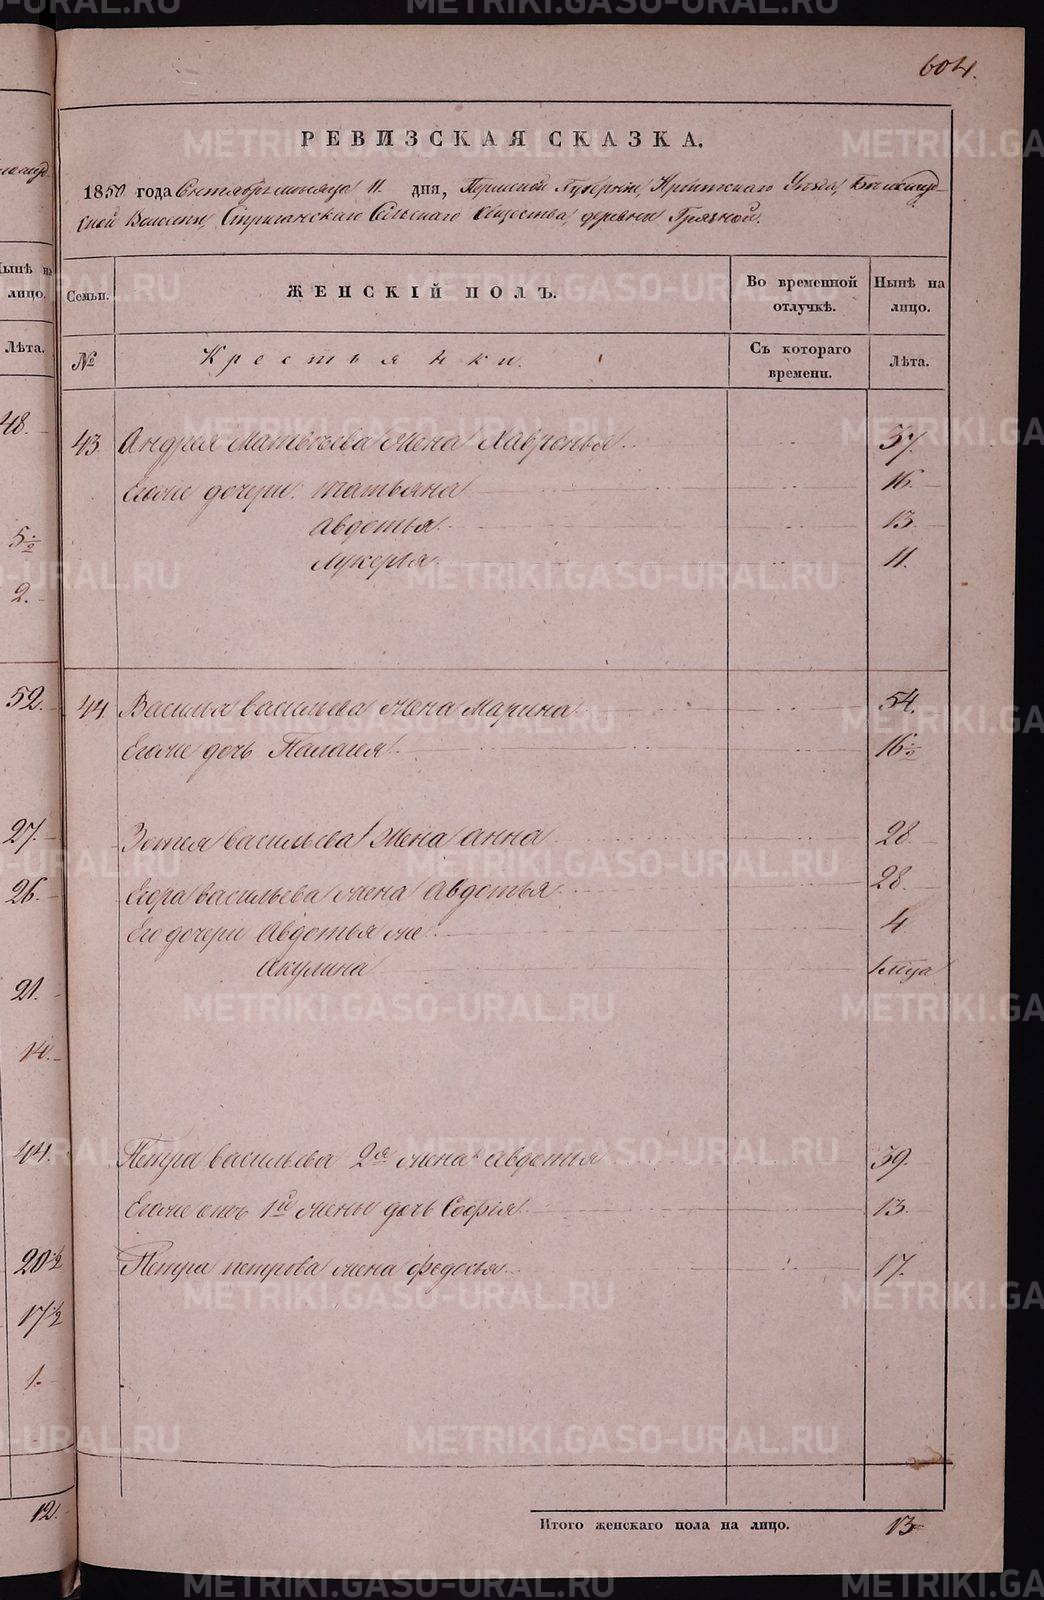 604.
РЕВИЗСКАЯ СКАЗКА.
1850 года Сентября месяца 11. дня, Пермской Губернии, Ирбитского Уезда,
ской Волости, Стриганскаго Сельскаго Общества, деревни Грязной.
Семьи. ЖЕНСКІЙ ПОЛЪ. Во временной отлучкѣ. Нынѣ на лицо.
№ Крестьянки. Съ котораго времени. Лѣта.
43. Андрея Матвѣева жена Лавренья 37.
Егоже дочери: татьяна 16.
Авдотья 13.
Лукерья 11.
44. Василья васильева жена Марина 54.
Егоже дочь Палагея 16½
Зотея васильева жена анна 28.
Егора васильева жена Авдотья 28.
Его дочери Авдотья же 4.
Акулина 1 мца
Петра васильева 2я жена Авдотья 39.
Егоже отъ 1й жены дочь Софія 13.
Петра петрова жена федосья 17.
Итого женскаго пола на лицо. 13
Нынѣ на лицо.
Лѣта.
48.
5½
2.
52.
27.
26.
21.
14.
44.
20½
17½
1.
12.
METRIKI.GASO-URAL.RU